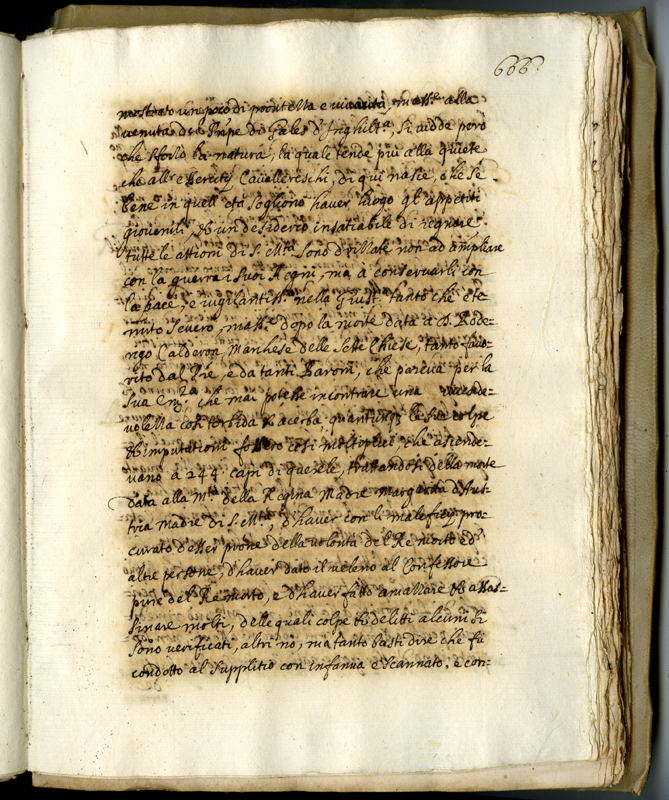 666.
mostrato un poco di prontezza e vivacità, mass.e alla
venuta del Prnpe di Gales d'Inghilt.a, si vidde però
che sforzò la natura, la quale tende più alla quiete
che all'esercitij Cavallereschi, di qui nasce, che se
bene in quell'età sogliono haver luogo gl'appetiti
giovenili, et un desiderio insatiabile di regnare
tutte le attioni di S. M.tà sono drizzate non ad ampliare
con la guerra i suoi Regni, ma à conservarli con
la pace, e vigilantiss.o nella Giust.a tanto che è te-
nuto severo, mass.e dopo la morte data a D. Rode-
rigo Calderon Marchese delle Sette Chiese, tanto favo-
rito dal Rè, e da tanti Baroni, che pareva per la
sua che mai potesse incontrare una
volezza così torbida et acerba, quantunq le sue colpe
et imputationi fossero così moltiplici che ascende-
vano à 244 capi di querele, trattandosi della morte
data alla M.tà della Regina Madre Margarita d'Aus-
tria Madre di S. M.tà, d'haver con li maleficij pro-
curato d'esser prone della volontà del Rè morto ed
altre persone, d'haver dato il veleno al Confessore
pure del Rè morto, e d'haver fatto amazzare et assas-
sinare molti, delle quali colpe et delitti alcuni si
sono verificati, altri nò, ma tanto basti dire che fù
condotto al supplitio con infamia e scannato, e con-